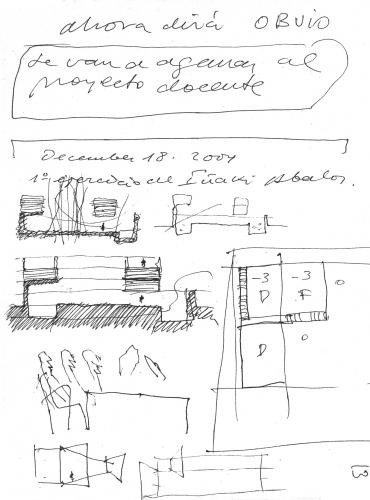 ahora dirá OBVIO
se van a agenar al
proyecto docente
December 18. 2001
1º ejercicio de Iñaki Abalos.
-3 -3
D F 0
D 0